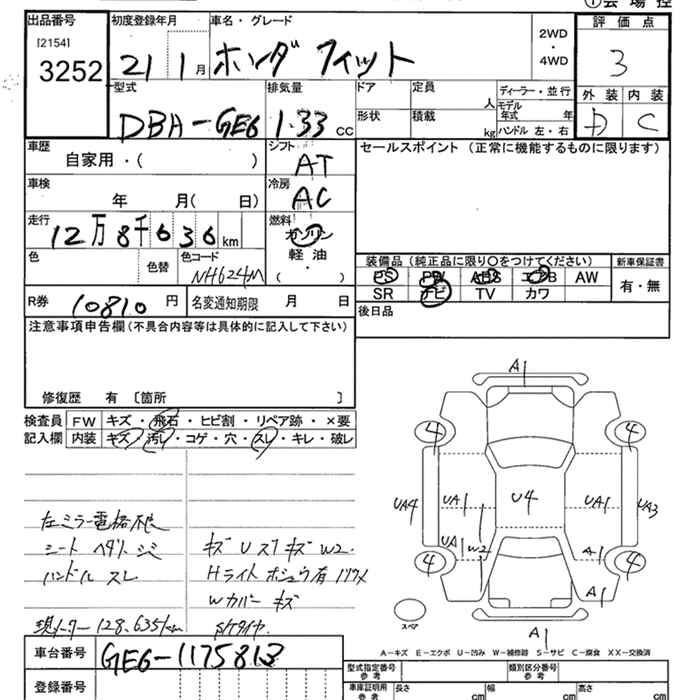 ①会 場 控
出品番号
[2154]
3252
初度登録年月
21 1 月
車名・グレード
ホンダ フィット
2WD
・
4WD
評 価 点
3
外 装 内 装
D C
型式
DBA-GE6
排気量
1.33 CC
ドア
定員
人
形状
積載
kg
ディーラー・並 行
モデル年式 年
ハンドル 左・右
車歴
自家用・( )
シフト
AT
セールスポイント (正常に機能するものに限ります)
車検
年 月( 日)
冷房
AC
走行
12万 8千 6 3 6 km
燃料
ガソリン
軽 油
・
( )
色
色替
色コード
NH624M
装備品(純正品に限り〇をつけてください)
新車保証書
PS PW ABS エアB AW
SR ナビ TV カワ
有・無
R券
10810 円
名変通知期限 月 日
後日品
注意事項申告欄(不具合内容等は具体的に記入して下さい)
修復歴 有 〔箇所 〕
検査員
記入欄
FW キズ・飛石・ヒビ割・リペア跡・×要
内装 キズ・汚レ・コゲ・穴・スレ・キレ・破レ
左ミラー電格不良
シート ヘタリ シミ
ハンドル スレ
現メーター 128,635km
キズ U スリキズ W2.
Hライト
Wカバー キズ
A1
4
4
UA4
UA1
U4
UA1
UA3
UA1
W2
A1
4
4
A1
スペア
A1
A-キズ E-エクボ U-凹み W-補修跡 S-サビ C-腐食 XX-交換済
車台番号
GE6-1175813
登録番号
型式指定番号
参考
類別区分番号
参考
車庫証明用
参考
長さ cm 幅 cm 高さ cm